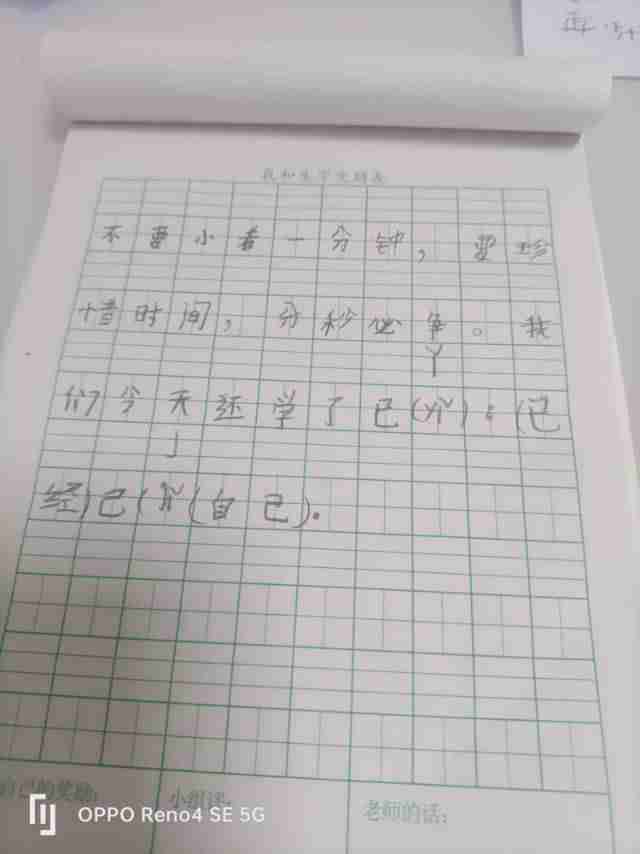 不要小看一分钟，要珍
惜时间，分秒必争。我
们今天还学了已(yǐ)：(已
经)己(jǐ(自己).
自己的奖励：
小组评：
老师的话：
OPPO Reno4 SE 5G